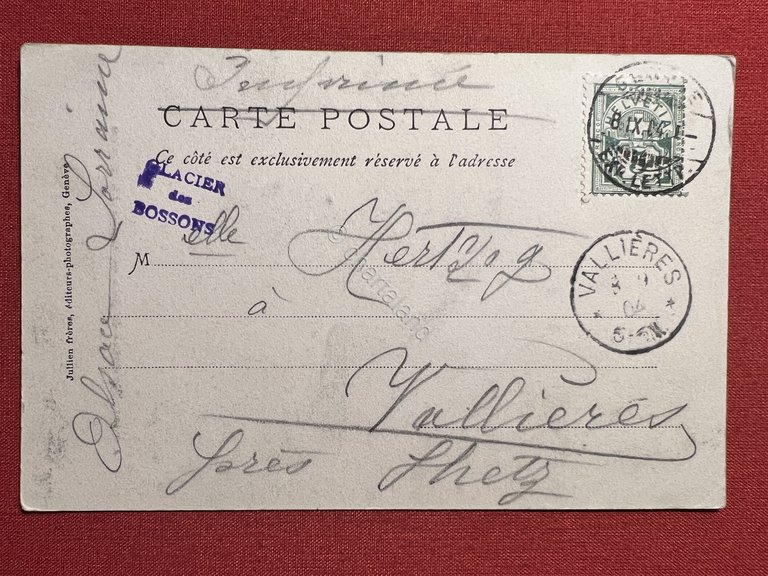 Imprimé
CARTE POSTALE
Ce côté est exclusivement réservé à l'adresse
GLACIER
des
BOSSONS
Melle Hertzog
à
Vallières
près Metz
Alsace Lorraine
Jullien frères, éditeurs-photographes, Genève
HELVETIA
VALLIÈRES
04